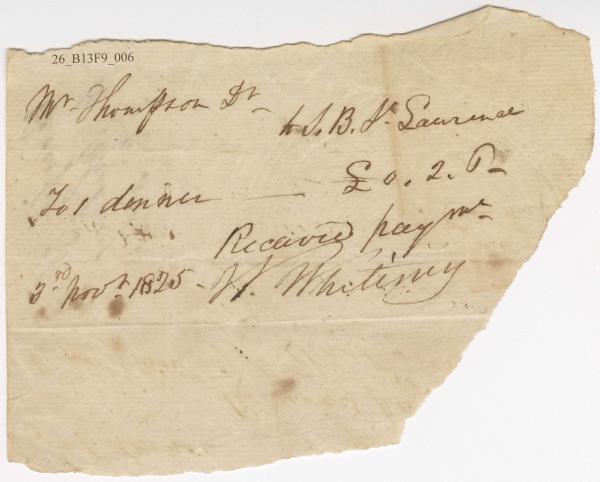 26_B13F9_006
Mr. Thompson Dr
to S. B. St. Lawrence
To 1 dinner — £ 0. 2. 6
Received paymt
3rd Novr 1825 - W. Whitney